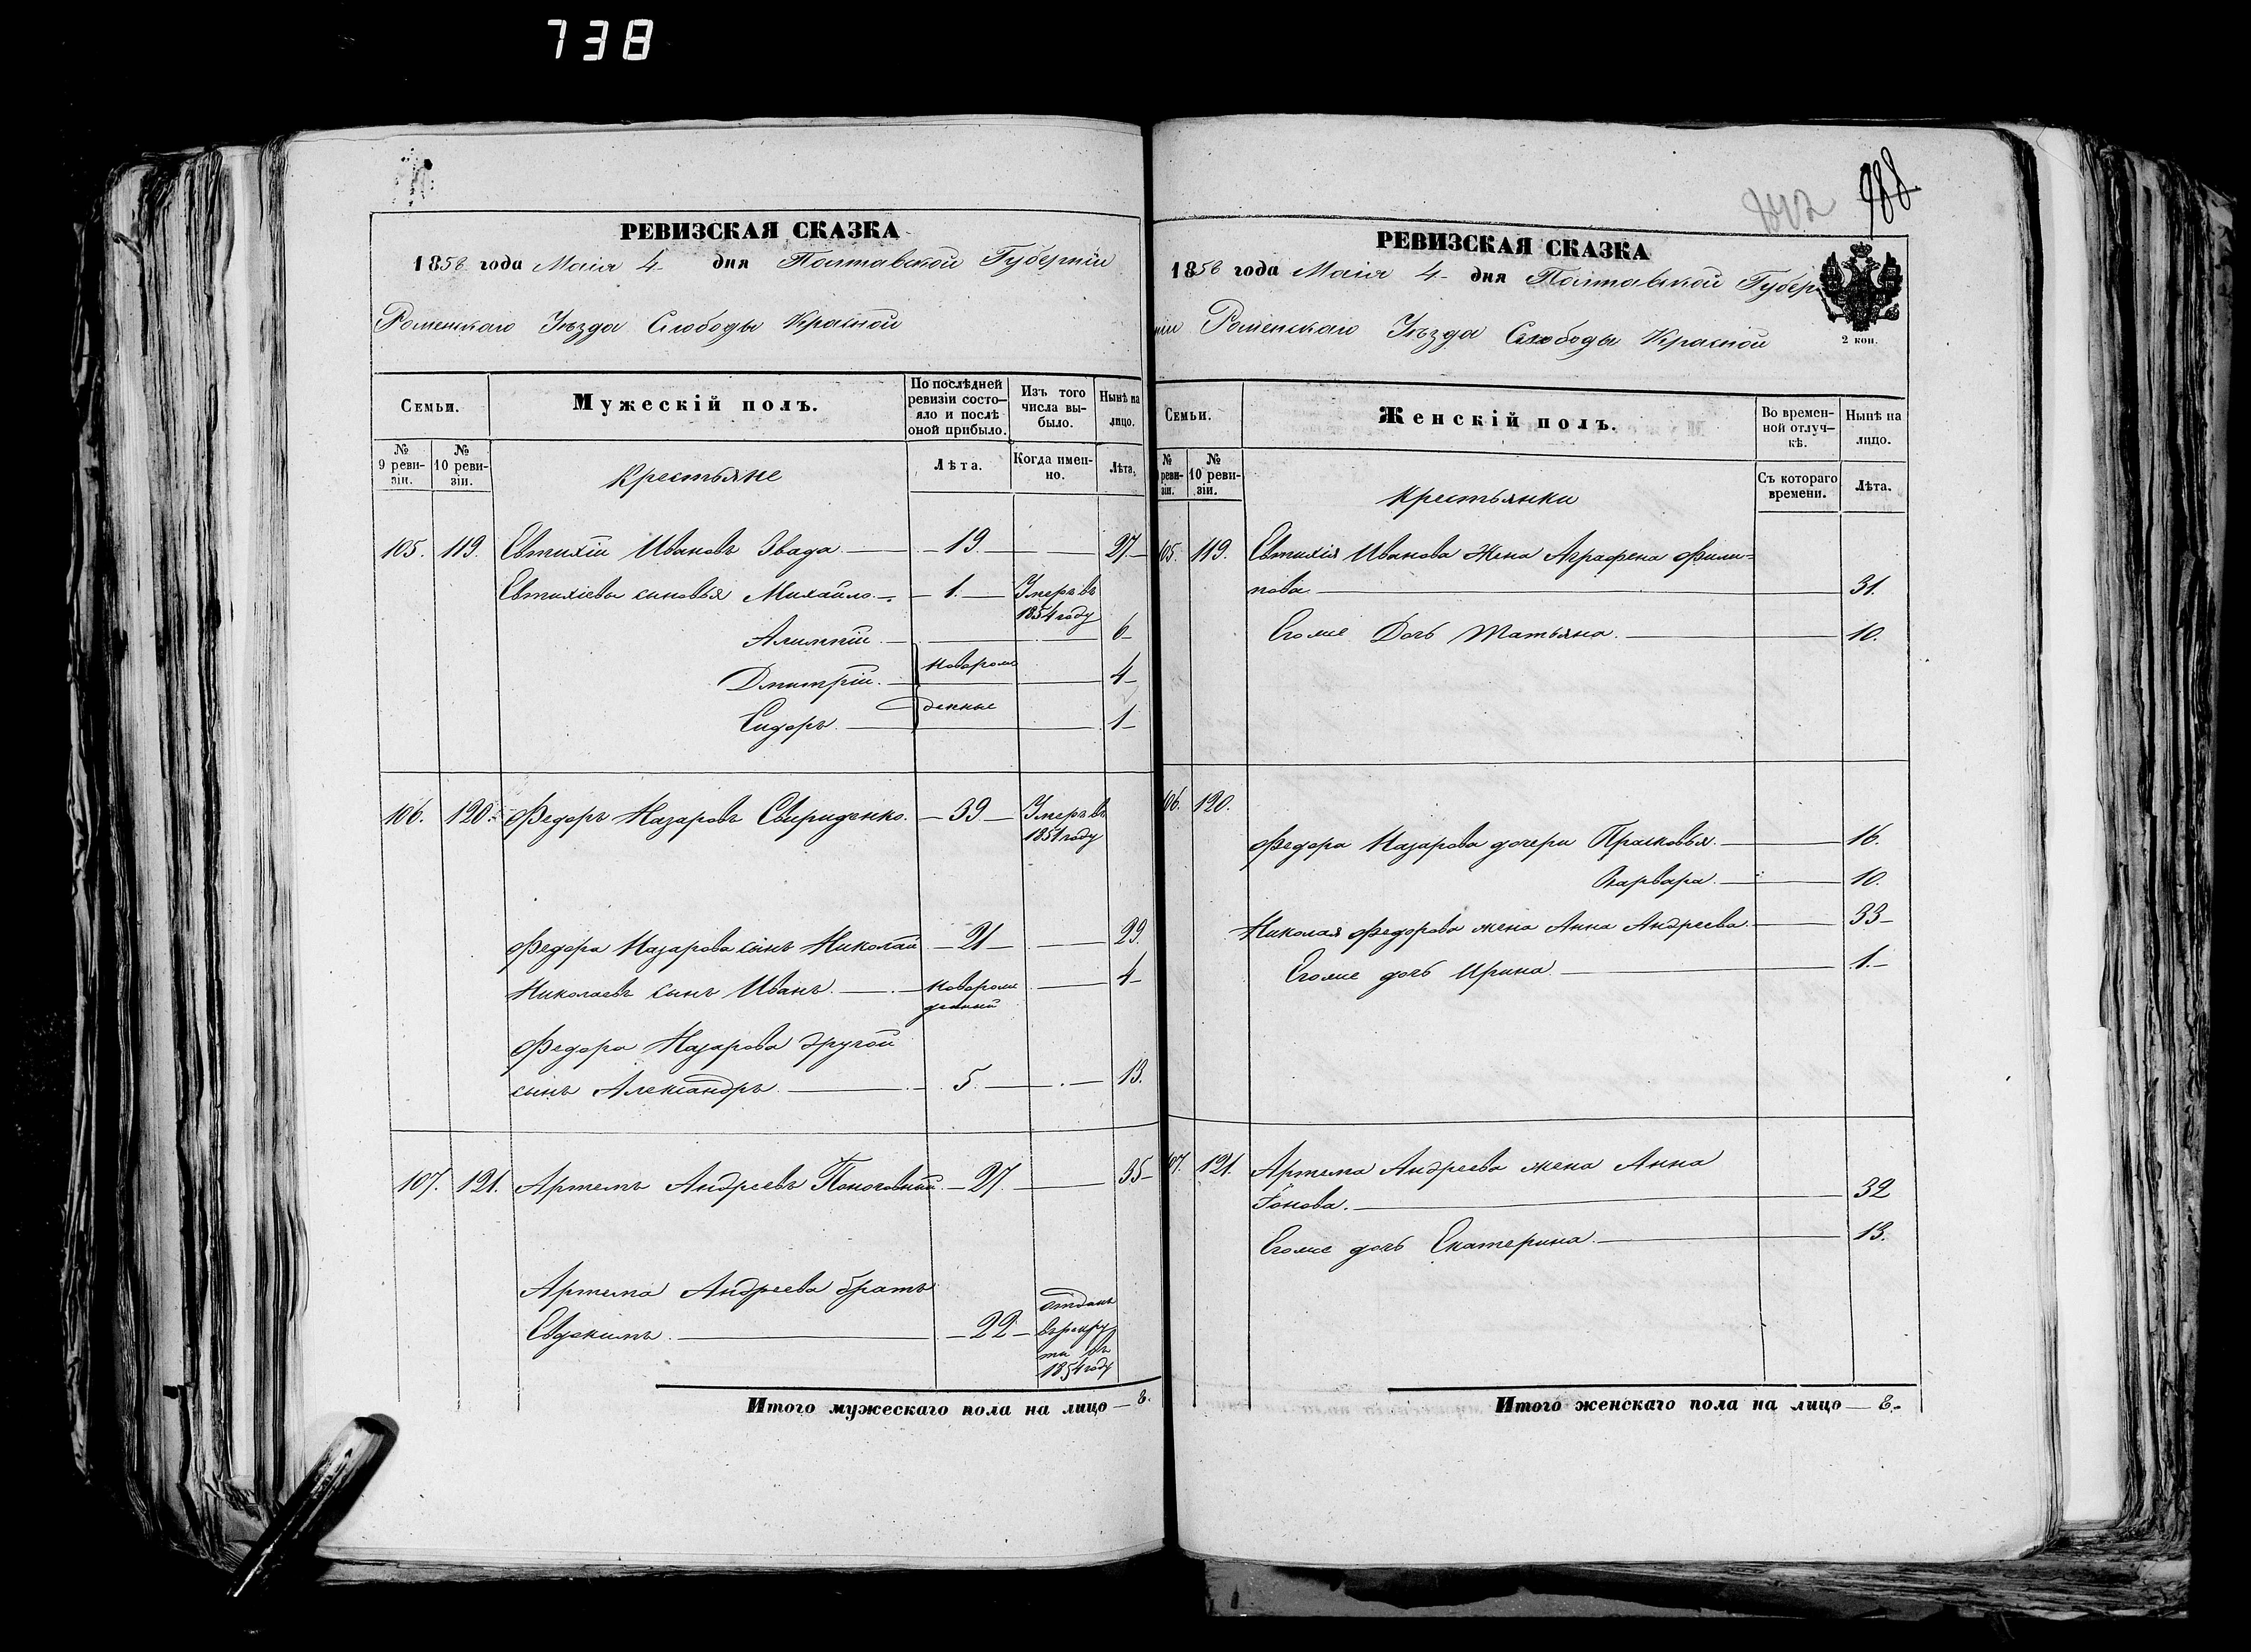 738
РЕВИЗСКАЯ СКАЗКА
1858 года Маія 4 дня Полтавской Губерніи
Роменскаго Уѣзда Слободы Красной
Семьи.
Мужескій полъ.
По послѣдней ревизіи состояло и послѣ оной прибыло.
Изъ того числа выбыло.
Нынѣ на лицо.
№ 9 ревизіи.
№ 10 ревизіи.
Крестьяне
Лѣта.
Когда именно.
Лѣта.
105. 119. Евтихій Ивановъ Звада — 19 — 27
Евтихіевы сыновья Михайло — 1. — Умеръ въ
1854 году
Алимпій — 6
Дмитрій — новорож 4
Сидоръ — денные 1
106. 120. Федоръ Назаровъ Свириденко — 39 — Умеръ въ
1851 году
Федора Назарова сынъ Николай — 21 — 29
Николаевъ сынъ Иванъ — новорож 4
денный
Федора Назарова другой
сынъ Александръ — 5 — 13.
107. 121. Артемъ Андреевъ — 27 — 35
Артема Андреева братъ
Евдокимъ — 22 — отданъ
въ рекру
ты въ
1854 году
Итого мужескаго пола на лицо — 8.
842 988
РЕВИЗСКАЯ СКАЗКА
1858 года Маія 4 дня Полтавской Губер
ніи Роменскаго Уѣзда Слободы Красной
2 коп.
Семьи.
Женскій полъ.
Во временной отлучкѣ.
Нынѣ на лицо.
№ реви-зіи.
№ 10 ревизіи.
Крестьянки
Съ котораго времени.
Лѣта.
105. 119. Евтихія Иванова Жена Аграфена Фили=
пова — 31.
Егоже Дочь Татьяна — 10.
106. 120.
Федора Назарова дочери Прасковья — 16.
Варвара — 10.
Николая Федорова жена Анна Андреева — 33
Егоже дочь Ирина — 1.
107. 121. Артема Андреева жена Анна
— 32
Егоже дочь Екатерина — 13.
Итого женскаго пола на лицо — 8.